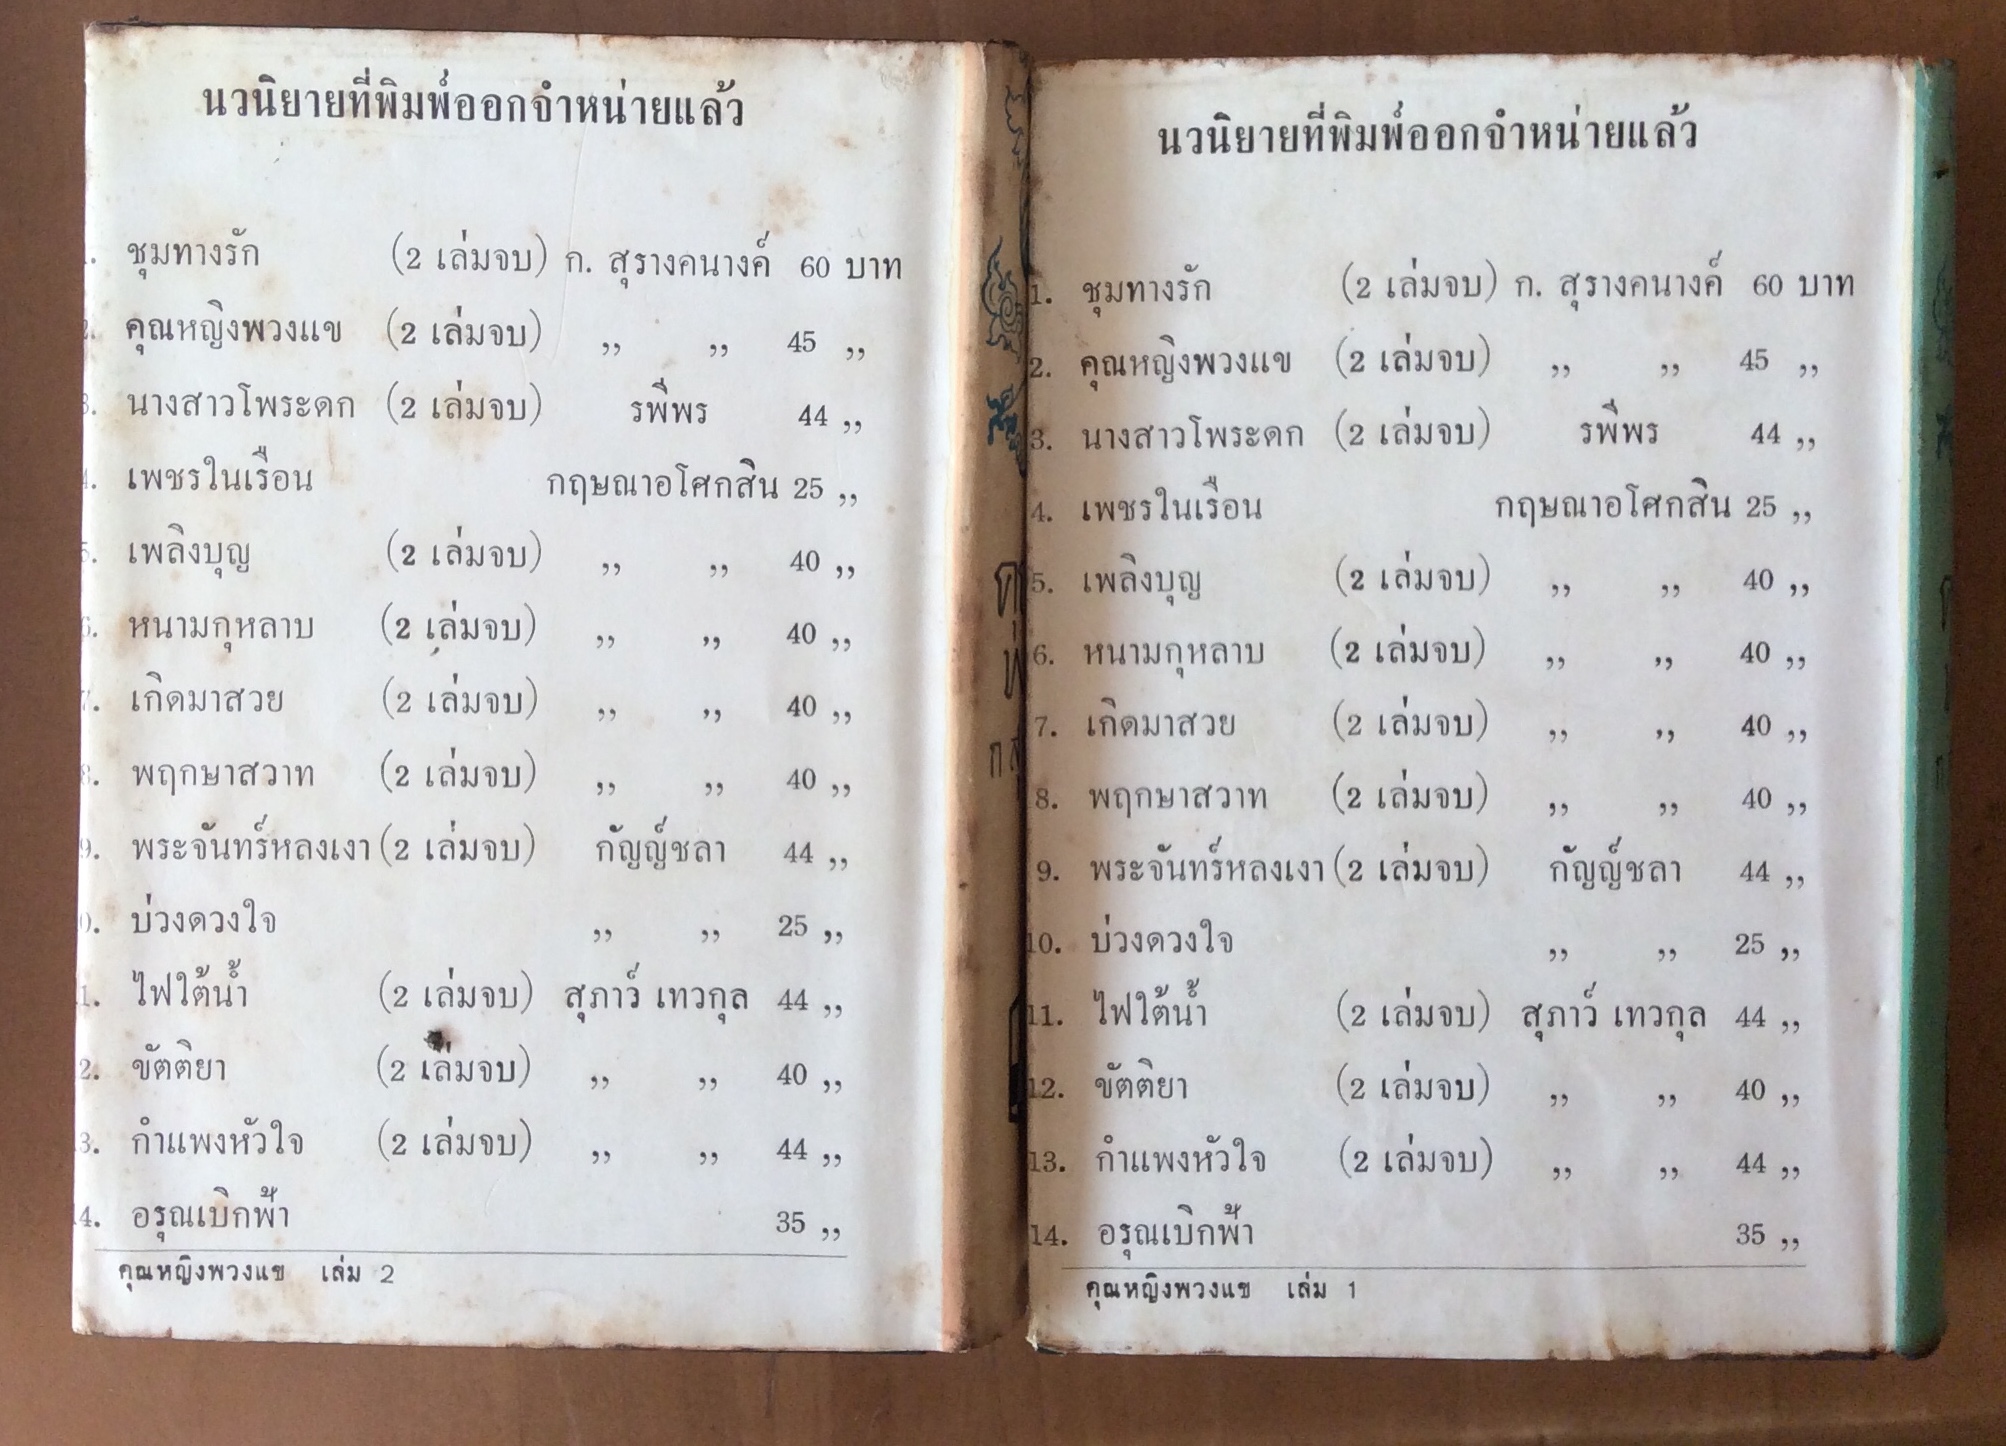 นวนิยายที่พิมพ์ออกจำหน่ายแล้ว
ชุมทางรัก (2 เล่มจบ) ก. สุรางคนางค์ 60 บาท
คุณหญิงพวงแข (2 เล่มจบ) ,, ,, 45 ,,
นางสาวโพระดก (2 เล่มจบ) รพีพร 44 ,,
เพชรในเรือน กฤษณาอโศกสิน 25 ,,
เพลิงบุญ (2 เล่มจบ) ,, ,, 40 ,,
หนามกุหลาบ (2 เล่มจบ) ,, ,, 40 ,,
เกิดมาสวย (2 เล่มจบ) ,, ,, 40 ,,
พฤกษาสวาท (2 เล่มจบ) ,, ,, 40 ,,
9. พระจันทร์หลงเงา (2 เล่มจบ) กัญญ์ชลา 44 ,,
บ่วงดวงใจ ,, ,, 25 ,,
1. ไฟใต้น้ำ (2 เล่มจบ) สุภาว์ เทวกุล 44 ,,
2. ขัตติยา (2 เล่มจบ) ,, ,, 40 ,,
3. กำแพงหัวใจ (2 เล่มจบ) ,, ,, 44 ,,
4. อรุณเบิกฟ้า 35 ,,
คุณหญิงพวงแข เล่ม 2
นวนิยายที่พิมพ์ออกจำหน่ายแล้ว
1. ชุมทางรัก (2 เล่มจบ) ก. สุรางคนางค์ 60 บาท
2. คุณหญิงพวงแข (2 เล่มจบ) ,, ,, 45 ,,
3. นางสาวโพระดก (2 เล่มจบ) รพีพร 44 ,,
4. เพชรในเรือน กฤษณาอโศกสิน 25 ,,
5. เพลิงบุญ (2 เล่มจบ) ,, ,, 40 ,,
6. หนามกุหลาบ (2 เล่มจบ) ,, ,, 40 ,,
7. เกิดมาสวย (2 เล่มจบ) ,, ,, 40 ,,
8. พฤกษาสวาท (2 เล่มจบ) ,, ,, 40 ,,
9. พระจันทร์หลงเงา (2 เล่มจบ) กัญญ์ชลา 44 ,,
10. บ่วงดวงใจ ,, ,, 25 ,,
11. ไฟใต้น้ำ (2 เล่มจบ) สุภาว์ เทวกุล 44 ,,
12. ขัตติยา (2 เล่มจบ) ,, ,, 40 ,,
13. กำแพงหัวใจ (2 เล่มจบ) ,, ,, 44 ,,
14. อรุณเบิกฟ้า 35 ,,
คุณหญิงพวงแข เล่ม 1